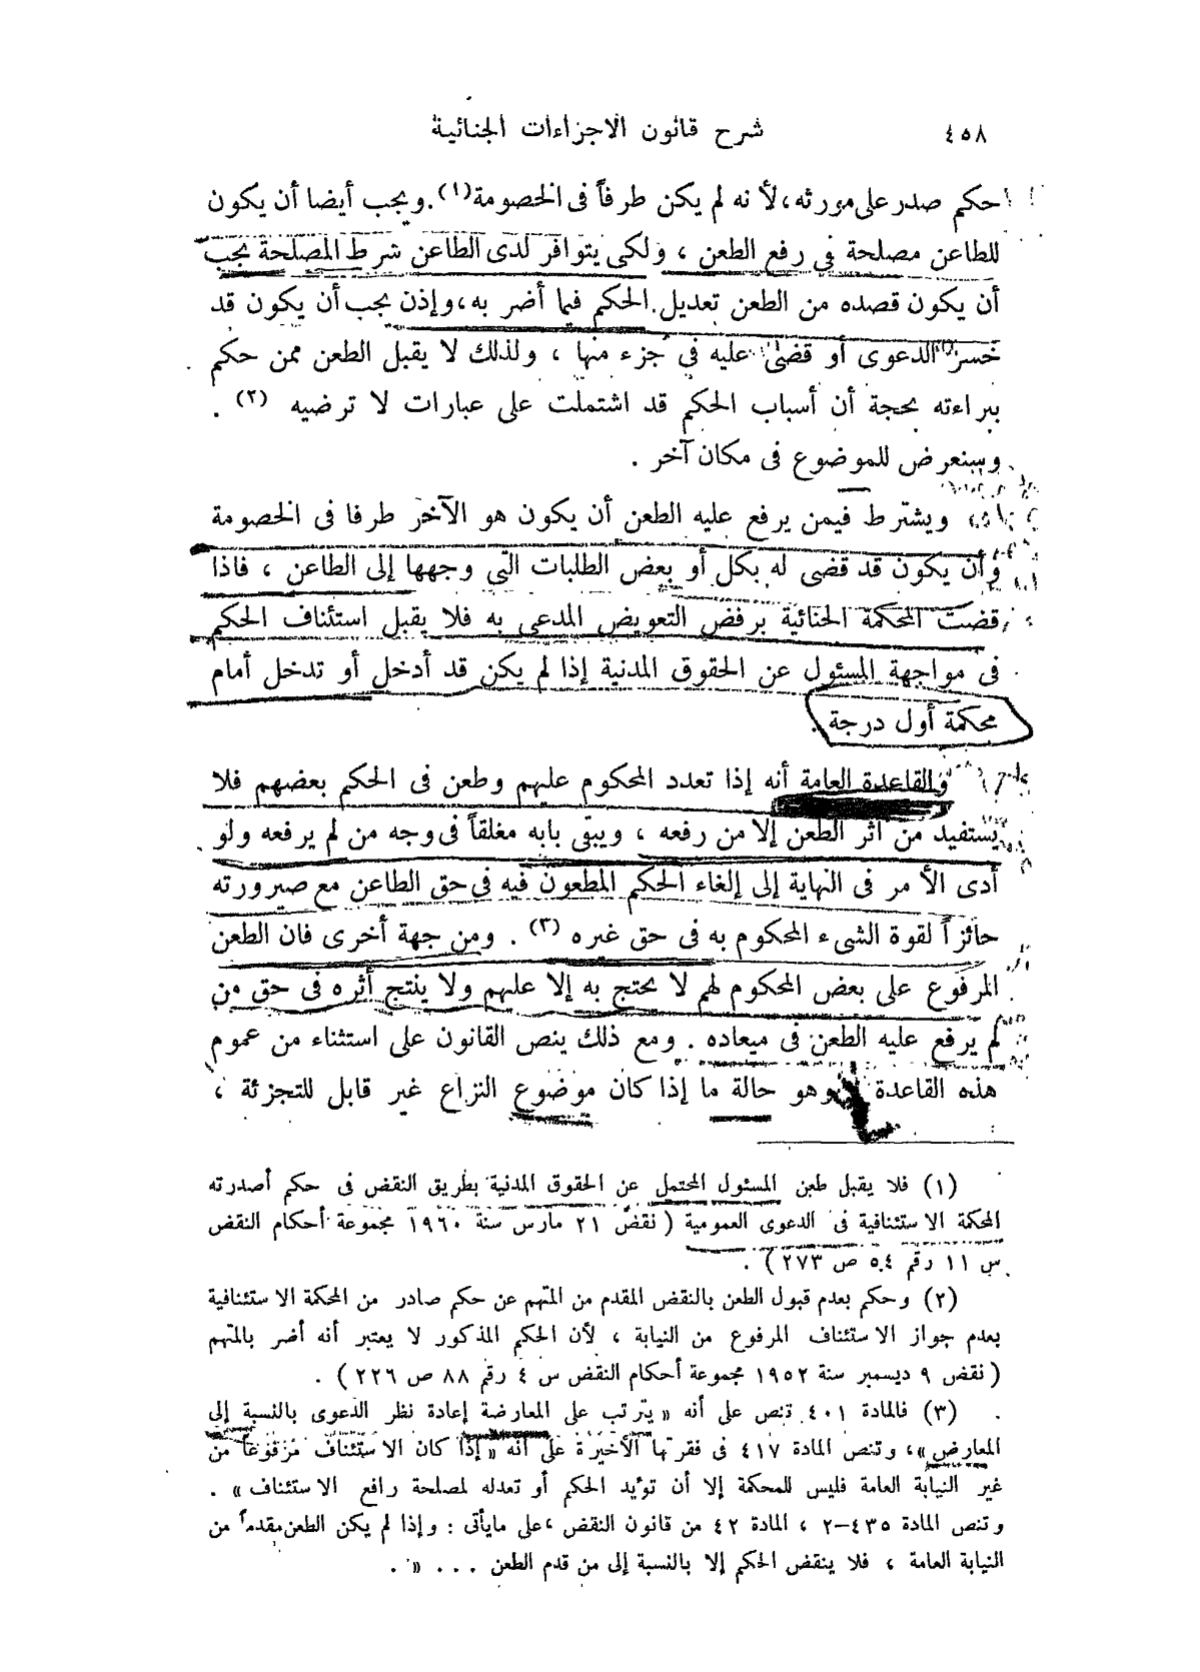 ٤٥٨ شرح قانون الاجراءات الجنائية
حكم صدر على مورثه، لأنه لم يكن طرفاً فى الخصومة(١). ويجب أيضا أن يكون
للطاعن مصلحة فى رفع الطعن ، ولكى يتوافر لدى الطاعن شرط المصلحة يجب
أن يكون قصده من الطعن تعديل الحكم فيما أضر به، وإذن يجب أن يكون قد
خسر الدعوى أو قضى عليه فى جزء منها ، ولذلك لا يقبل الطعن ممن حكم
ببراءته بحجة أن أسباب الحكم قد اشتملت على عبارات لا ترضيه (٢) .
وسنعرض للموضوع فى مكان آخر .
ويشترط فيمن يرفع عليه الطعن أن يكون هو الآخر طرفا فى الخصومة
وأن يكون قد قضى له بكل أو بعض الطلبات التى وجهها إلى الطاعن ، فاذا
قضت المحكمة الجنائية برفض التعويض المدعى به فلا يقبل استئناف الحكم
فى مواجهة المسئول عن الحقوق المدنية إذا لم يكن قد أدخل أو تدخل أمام
محكمة أول درجة .
والقاعدة العامة أنه إذا تعدد المحكوم عليهم وطعن فى الحكم بعضهم فلا
يستفيد من أثر الطعن إلا من رفعه ، ويبقى بابه مغلقاً فى وجه من لم يرفعه ولو
أدى الأمر فى النهاية إلى إلغاء الحكم المطعون فيه فى حق الطاعن مع صيرورته
حائزاً لقوة الشىء المحكوم به فى حق غيره (٣) . ومن جهة أخرى فان الطعن
المرفوع على بعض المحكوم لهم لا يحتج به إلا عليهم ولا ينتج أثره فى حق من
لم يرفع عليه الطعن فى ميعاده . ومع ذلك ينص القانون على استثناء من عموم
هذه القاعدة وهو حالة ما إذا كان موضوع النزاع غير قابل للتجزئة ،
(١) فلا يقبل طعن المسئول المحتمل عن الحقوق المدنية بطريق النقض فى حكم أصدرته
المحكمة الاستئنافية فى الدعوى العمومية ( نقض ٢١ مارس سنة ١٩٦٠ مجموعة أحكام النقض
س ١١ رقم ٥٤ ص ٢٧٣ ) .
(٢) وحكم بعدم قبول الطعن بالنقض المقدم من المتهم عن حكم صادر من المحكمة الاستئنافية
بعدم جواز الاستئناف المرفوع من النيابة ، لأن الحكم المذكور لا يعتبر أنه أضر بالمتهم
( نقض ٩ ديسمبر سنة ١٩٥٢ مجموعة أحكام النقض س ٤ رقم ٨٨ ص ٢٢٦ ) .
(٣) فالمادة ٤٠١ تنص على أنه « يترتب على المعارضة إعادة نظر الدعوى بالنسبة إلى
المعارض »، وتنص المادة ٤١٧ فى فقرتها الأخيرة على أنه « إذا كان الاستئناف مرفوعاً من
غير النيابة العامة فليس للمحكمة إلا أن تؤيد الحكم أو تعدله لمصلحة رافع الاستئناف » .
وتنص المادة ٤٣٥–٢ ، المادة ٤٢ من قانون النقض ، على مايأتى : وإذا لم يكن الطعن مقدماً من
النيابة العامة ، فلا ينقض الحكم إلا بالنسبة إلى من قدم الطعن . . . » .